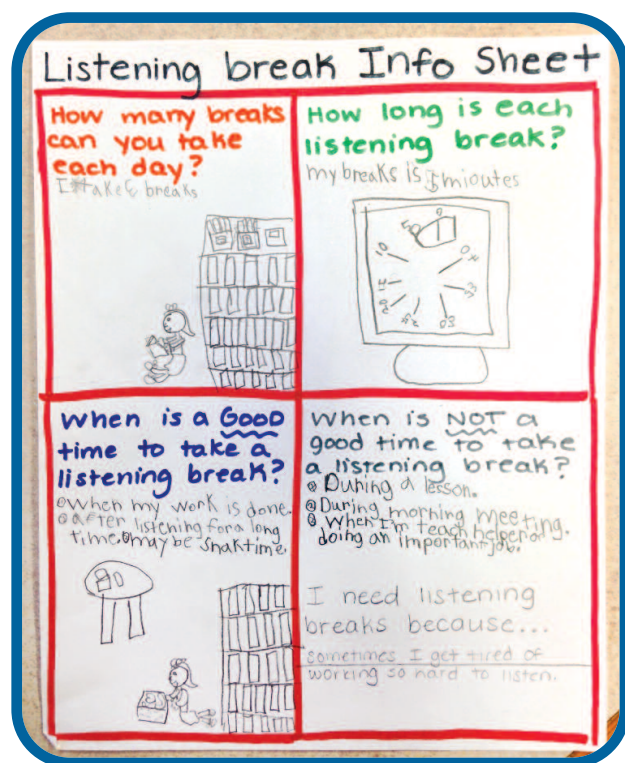 Listening break Info Sheet
How many breaks
can you take
each day?
I take breaks
How long is each
listening break?
my breaks is 5 mioutes
When is a GOOD
time to take a
listening break?
When my work is done.
after listening for a long
time. may be snaktime.
When is NOT a
good time to take
a listening break?
During a lesson.
During morning meeting.
When I'm teach helper or
doing an important job.
I need listening
breaks because...
sometimes I get tired of
working so hard to listen.